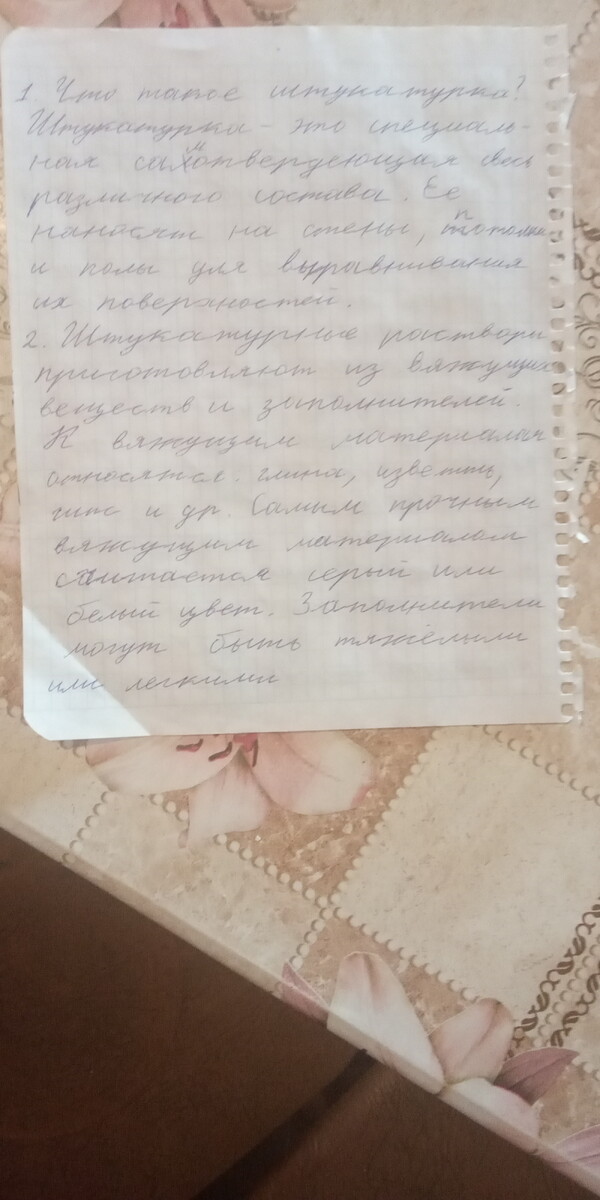 1. Что такое штукатурка?
Штукатурка - это специаль-
ная самотвердеющая смесь
различного состава. Ее
наносят на стены, потолки
и полы для выравнивания
их поверхностей.
2. Штукатурные растворы
приготовляют из вяжущих
веществ и заполнителей.
К вяжущим материалам
относятся глина, известь,
гипс и др. Самым прочным
вяжущим материалом
считается серый или
белый цвет. Заполнители
могут быть тяжёлыми
или легкими